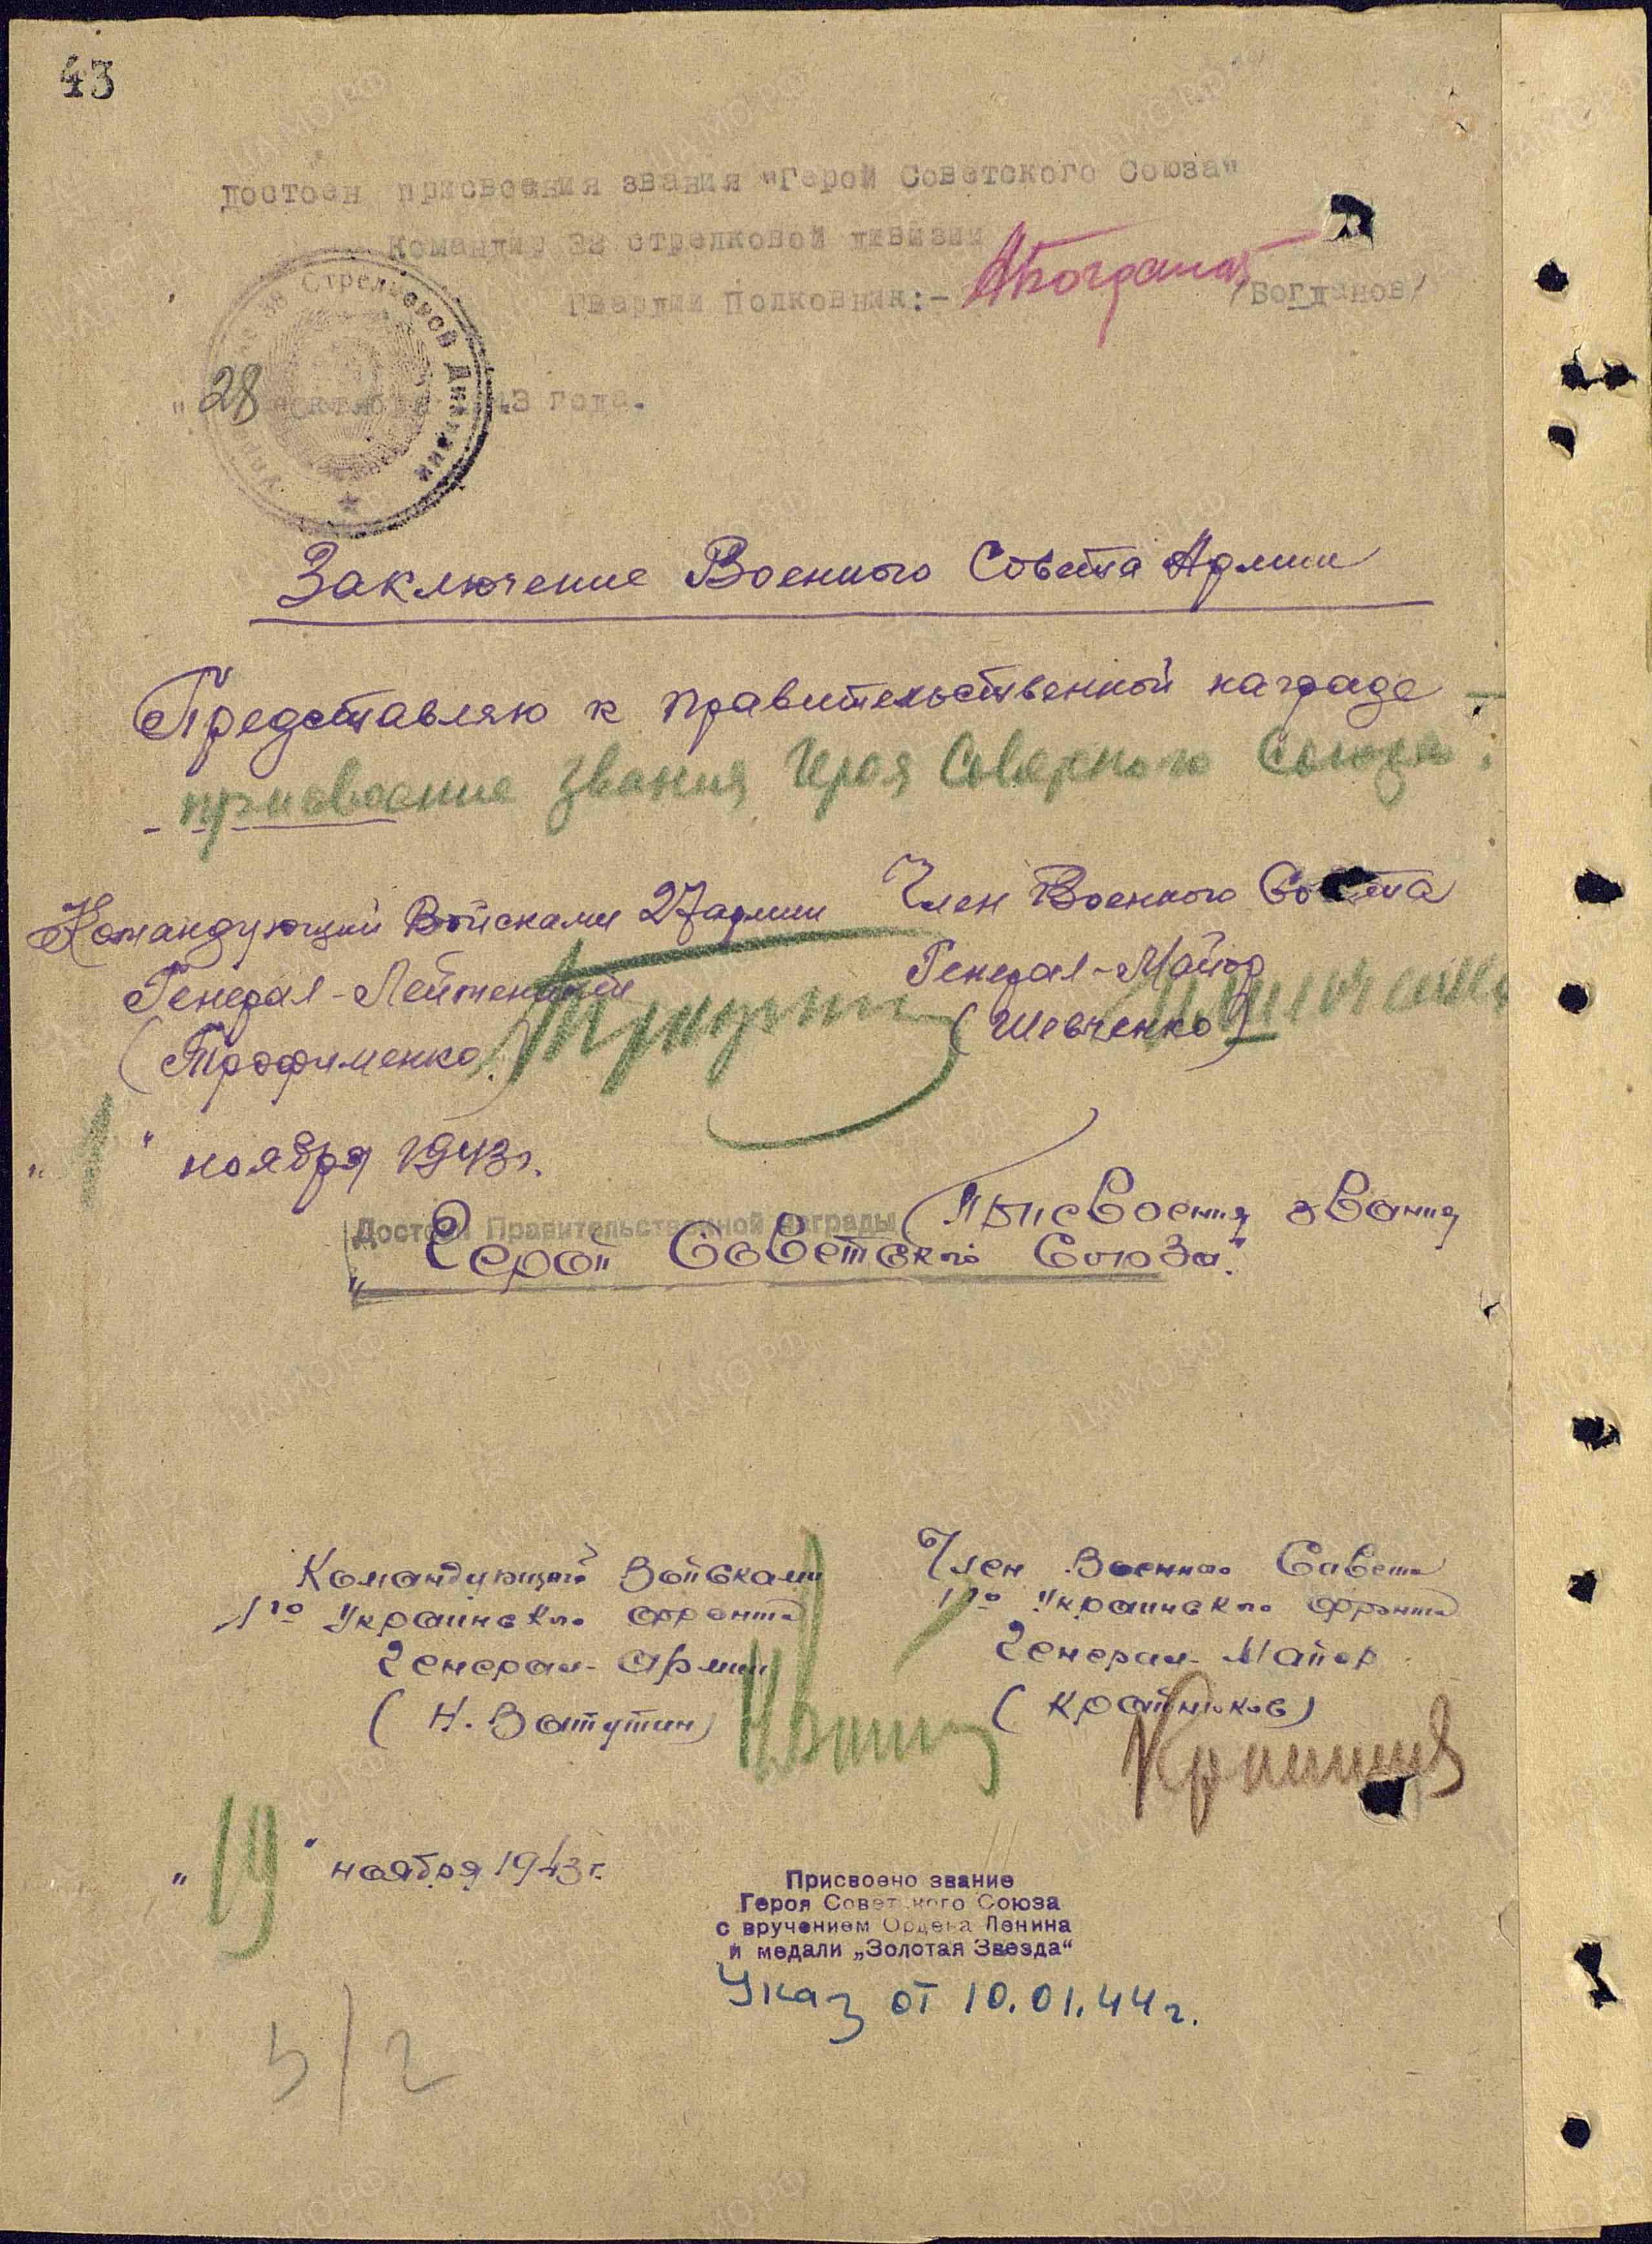 43
достоен присвоения звания "Герой Советского Союза"
Командир 38 стрелковой дивизии
Гвардии Полковник:- /Богданов/
Стрелковой Дивизии
"28" октября 1943 года.
Заключение Военного Совета Армии
Представляю к правительственной награде –
присвоение звания Героя Советского Союза.
Командующий Войсками 27 армии
Генерал-Лейтенант
(Трофименко)
Член Военного Совета
Генерал-Майор
(Шевченко)
"1" ноября 1943 г.
Достоин Правительственной награды
Присвоения звания
"Герой Советского Союза".
Командующий Войсками
1го Украинского фронта
Генерал-армии
(Н. Ватутин)
Член Военного Совета
1го Украинского фронта
Генерал-Майор
(Крайнюков)
"19" ноября 1943 г.
Присвоено звание
Героя Советского Союза
с вручением Ордена Ленина
и медали „Золотая Звезда“
Указ от 10.01.44 г.
5/2